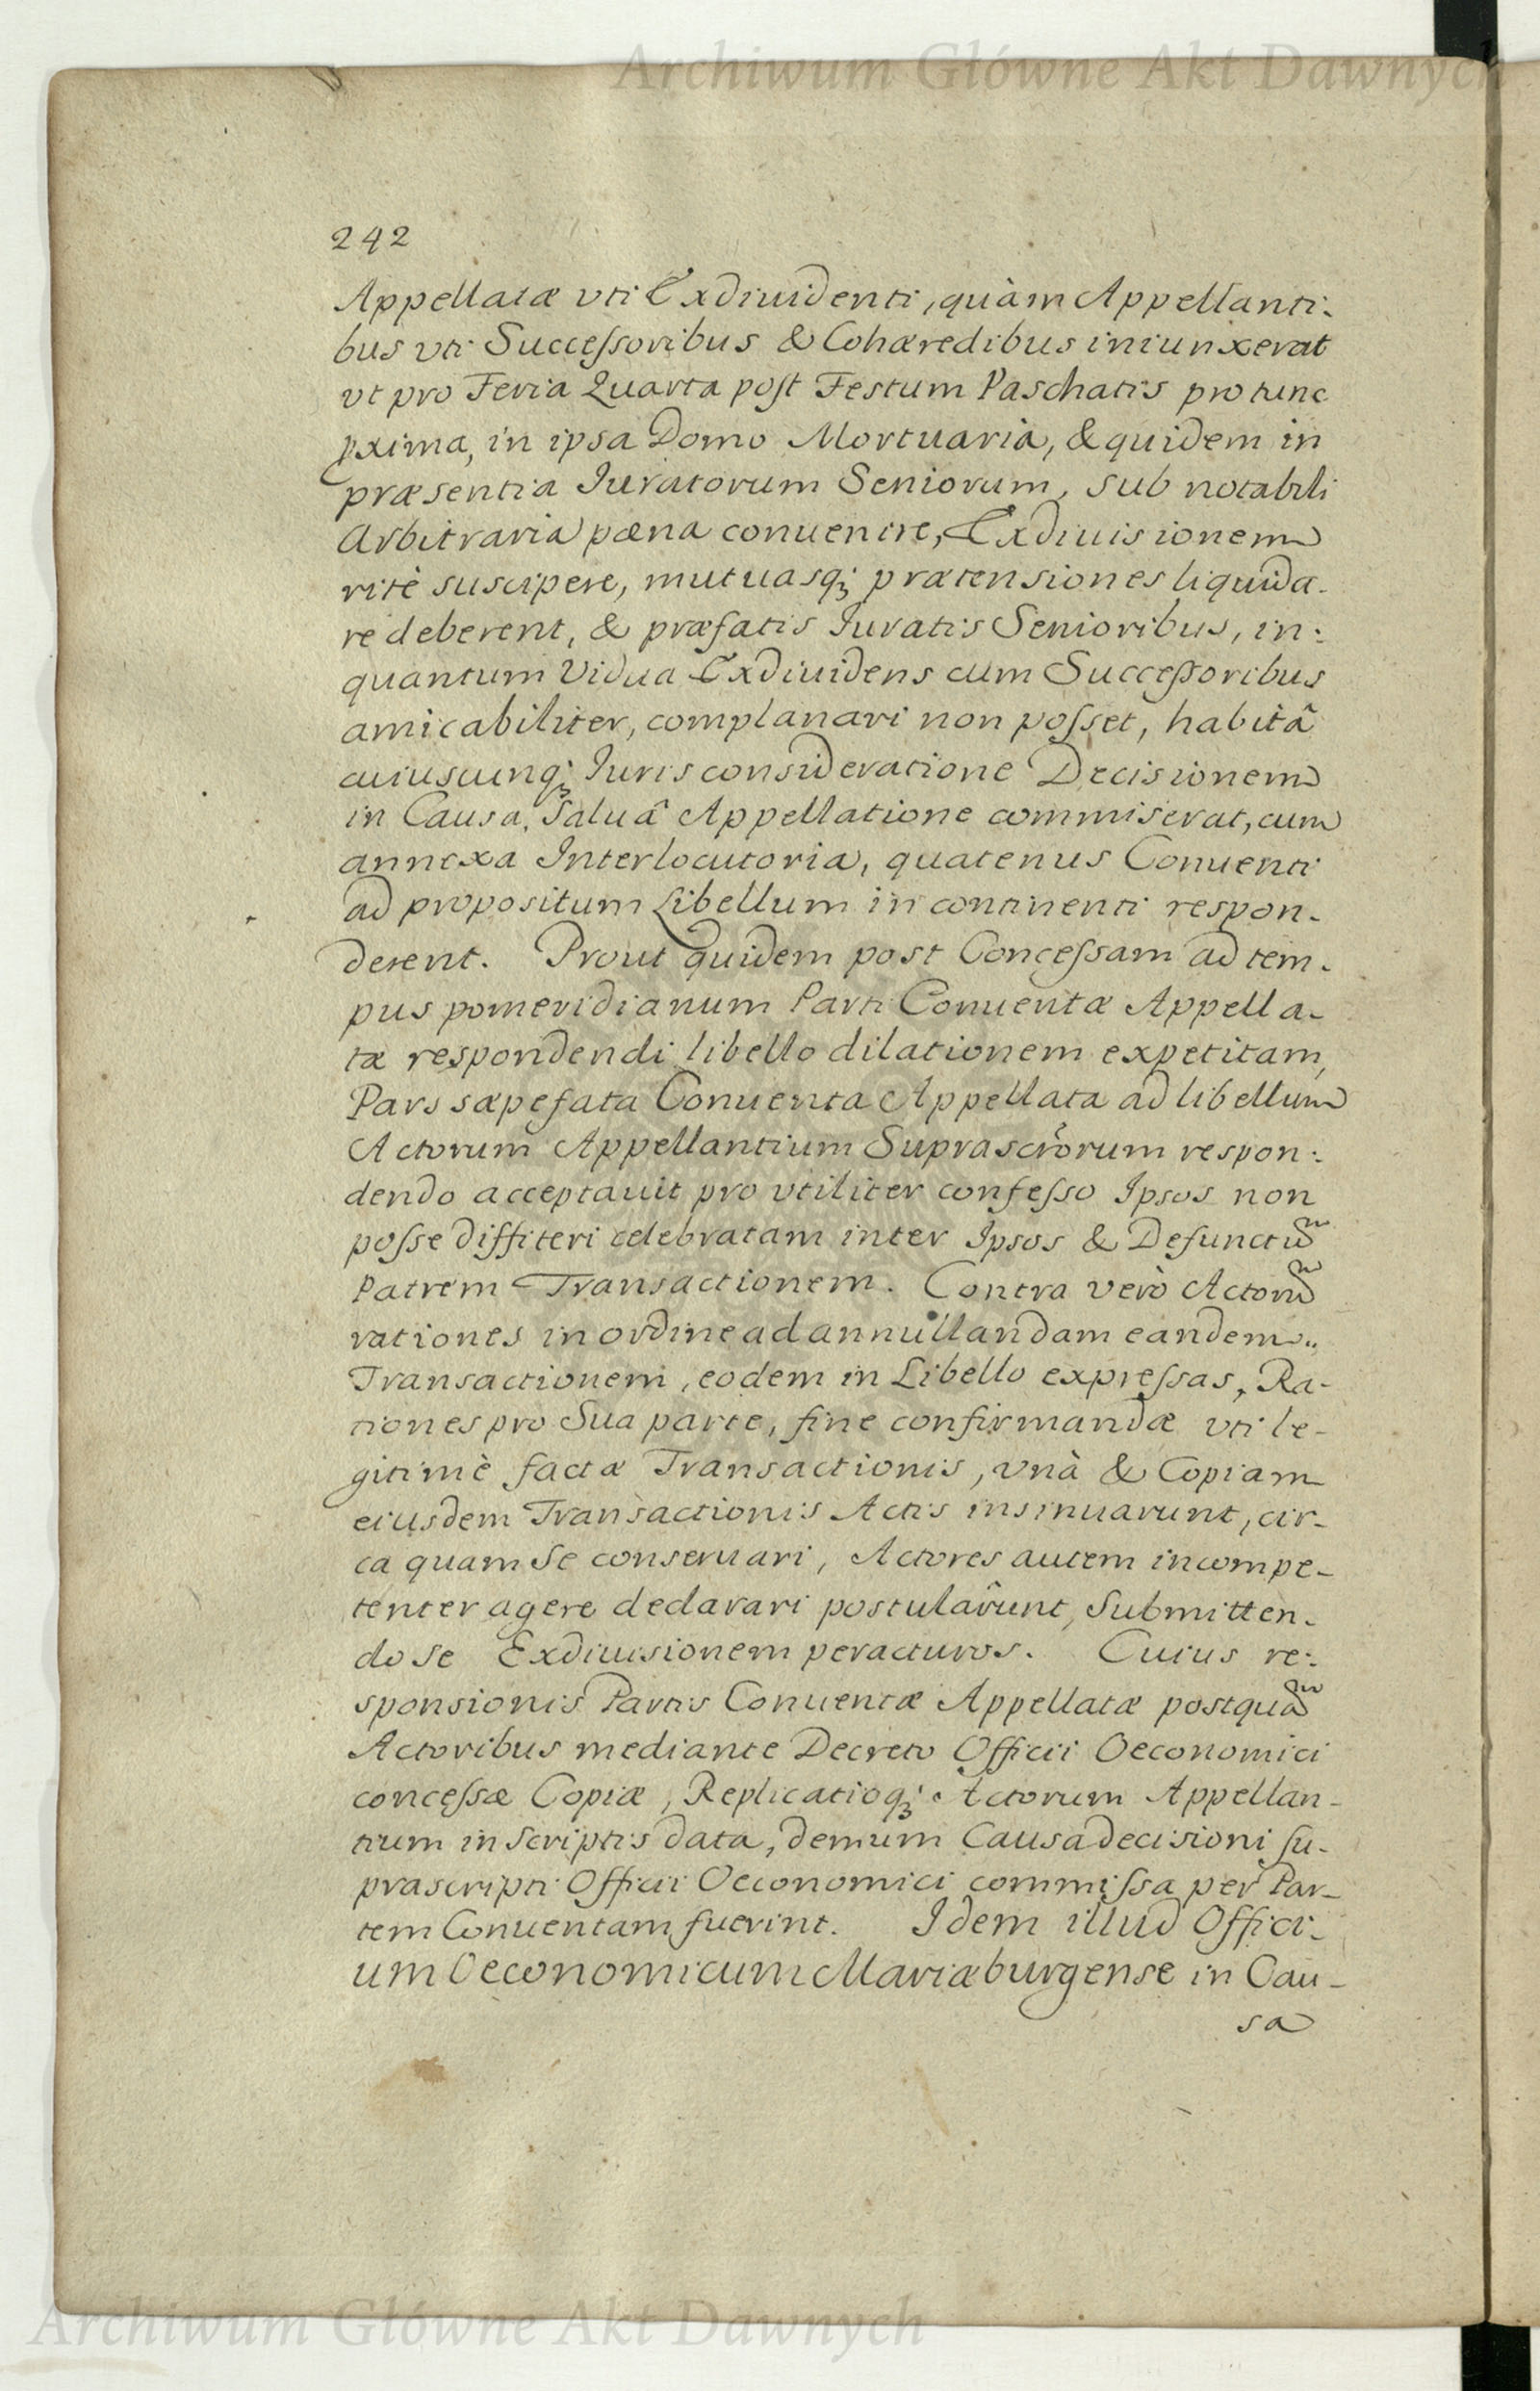 Archiwum Główne Akt Dawnych
242
Appellatæ vti Exdiuidenti, quàm Appellanti:
bus vti Succeſsoribus & Cohæredibus iniunxerat
vt pro Feria Quarta poſt Festum Paschatis pro tunc
pxima, in ipsa Domo Mortuaria, & quidem in
præsentia Iuratorum Seniorum, sub notabili
Arbitraria pœna conuenire, Exdiuisionem
ritè suscipere, mutuasq; prætensiones liquida-
re deberent, & præfatis Iuratis Senioribus, in:
quantum Vidua Exdiuidens cum Succeſsoribus
amicabiliter, complanari non poſset, habitâ
cuiuscunq; Iuris consideratione Decisionem
in Causa, Saluâ Appellatione commiserat, cum
annexa Interlocutoria, quatenus Conuenti
ad propositum Libellum in continenti respon-
derent. Prout quidem post Conceſsam ad tem-
pus pomeridianum Parti Conuentæ Appella-
tæ respondendi libello dilationem expetitam,
Pars sæpefata Conuenta Appellata ad libellum
Actorum Appellantium Suprascr̃orum respon:
dendo acceptauit pro vtiliter confeſso Ipsos non
poſse diffiteri celebratam inter Ipsos & Defunctũ
Patrem Transactionem. Contra verò Actorũ
rationes in ordine ad annullandam eandem
Transactionem, eodem in Libello expreſsas, Ra-
tiones pro Sua parte, fine confirmandæ vti le-
gitimè factæ Transactionis, vnà & Copiam
eiusdem Transactionis Actis insinuarunt, cir-
ca quam Se conseruari, Actores autem incompe-
tenter agere declarari postulârunt, Submitten-
do se Exdiuisionem peracturos. Cuius re:
sponsionis Partis Conuentæ Appellatæ postquã
Actoribus mediante Decreto Officii Oeconomici
conceſsæ Copiæ, Replicatioq; Actorum Appellan-
tium in Scriptis data, demum Causa decisioni su-
prascripti Officii Oeconomici commiſsa per Par-
tem Conuentam fuerint. Idem illud Offici-
um Oeconomicum Mariæburgense in Cau-
sa
Archiwum Główne Akt Dawnych